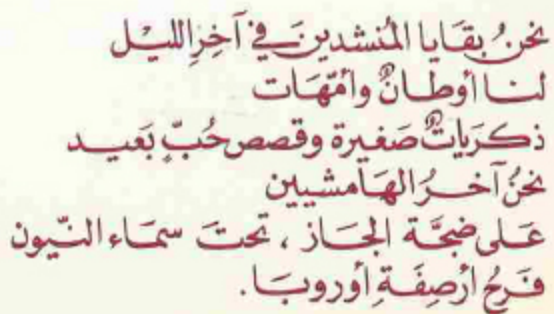 نحنُ بقَايا المُنشدينَ في آخِرِ الليْل
لنا أوطانٌ وأمّهَات
ذكرَياتٌ صَغيرة وقصص حُبّ بَعيد
نحنُ آخرُ الهَامشيين
عَلى ضجَّة الجَاز ، تحتَ سمَاء النّيون
فَرَحُ أرْصِفَةِ أوروبَا.